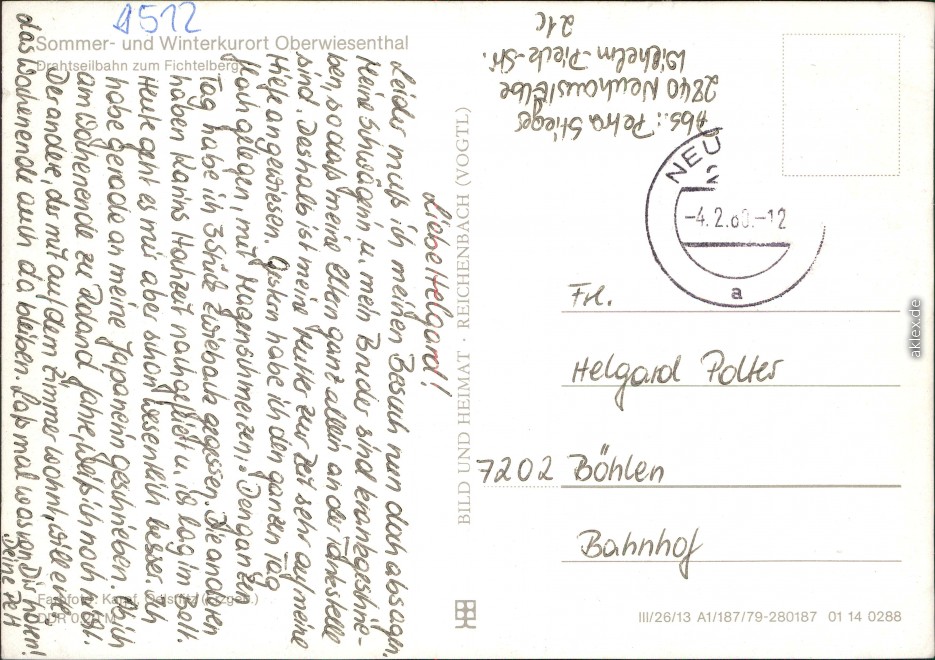 1512
Sommer- und Winterkurort Oberwiesenthal
Drahtseilbahn zum Fichtelberg
Liebe Helgard!
Leider muß ich meinen Besuch nun doch absagen.
Meine Schwägerin u. mein Bruder sind krankgeschrie-
ben, so daß meine Eltern ganz allein an der Tankstelle
sind. Deshalb ist meine Mutter zur Zeit sehr auf meine
Hilfe angewiesen. Gestern habe ich den ganzen Tag
flach gelegen, mit Magenschmerzen. Den ganzen
Tag habe ich 3 Stück Zwieback gegessen. Die anderen
haben Karins Hochzeit nachgefeiert u. ich lag im Bett.
Heute geht es mir aber schon wesentlich besser. Ich
habe gerade an meine Japanerin geschrieben. Ob ich
am Wochenende zu Roland fahre, weiß ich noch nicht.
Der andere, der mit auf dem Zimmer wohnt, will evtl.
das Wochenende auch da bleiben. Laß mal was von Dir hören!
Deine Petra
Farbfoto: Karpf, (Erzgeb.)
DDR 0,20 M
BILD UND HEIMAT · REICHENBACH (VOGTL)
Abs.: Petra Stieger
2840 Neuhaus/Elbe
Wilhelm-Pieck-Str.
21c
NEU
-4.2.80.-12
a
Frl.
Helgard Polter
7202 Böhlen
Bahnhof
III/26/13 A1/187/79-280187 01 14 0288
aklex.de